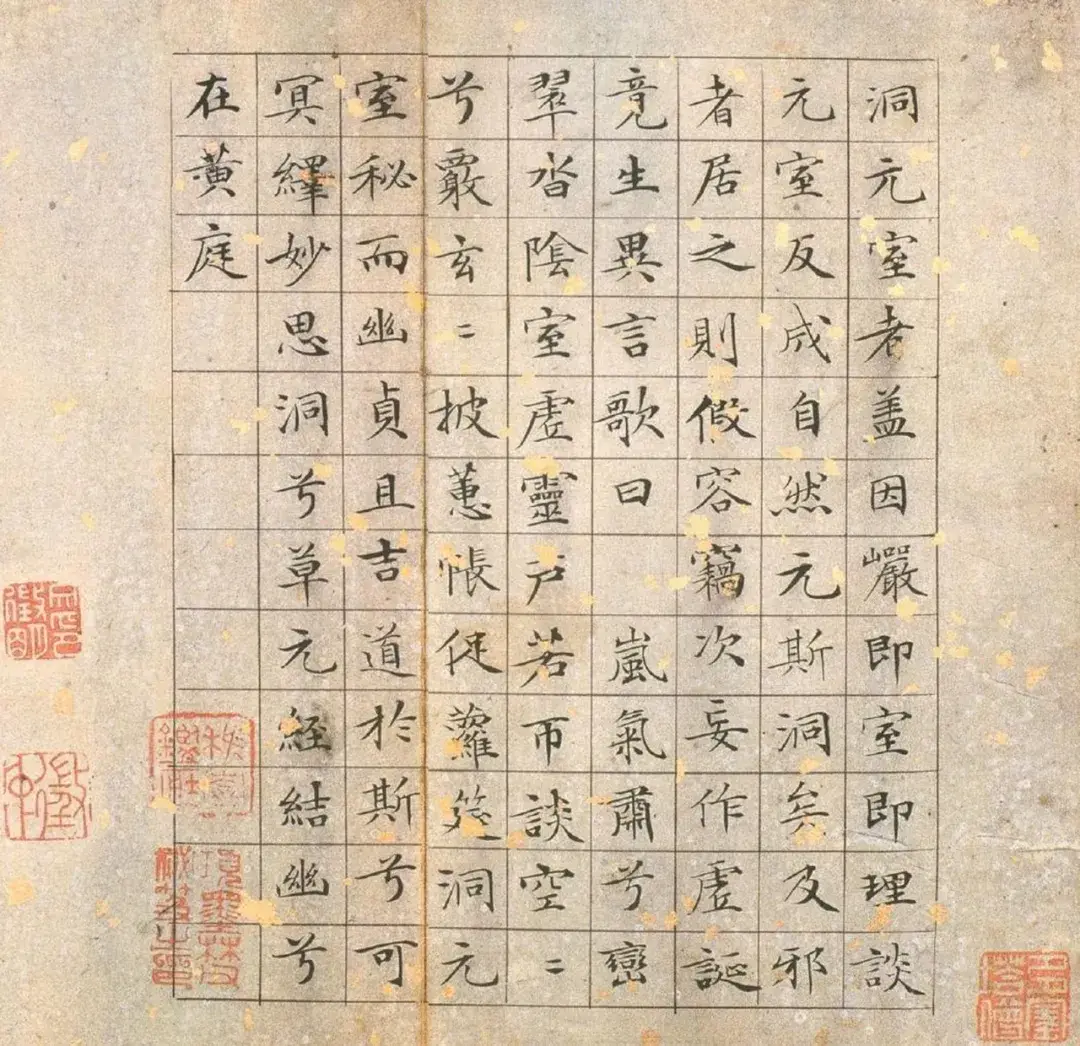 洞元室老盖因巖即室即理談
元室反成自然元斯洞矣及邪
者居之則假容竊次妄作虛誕
竟生異言歌曰 嵐氣肅兮巒
翠沓陰室虛靈戶若帀談空〻
兮覈玄〻披蕙帳促蘿筵洞元
室秘而幽貞且吉道於斯兮可
冥繹妙思洞兮草元經結幽兮
在黃庭
項墨林父
秘笈之印